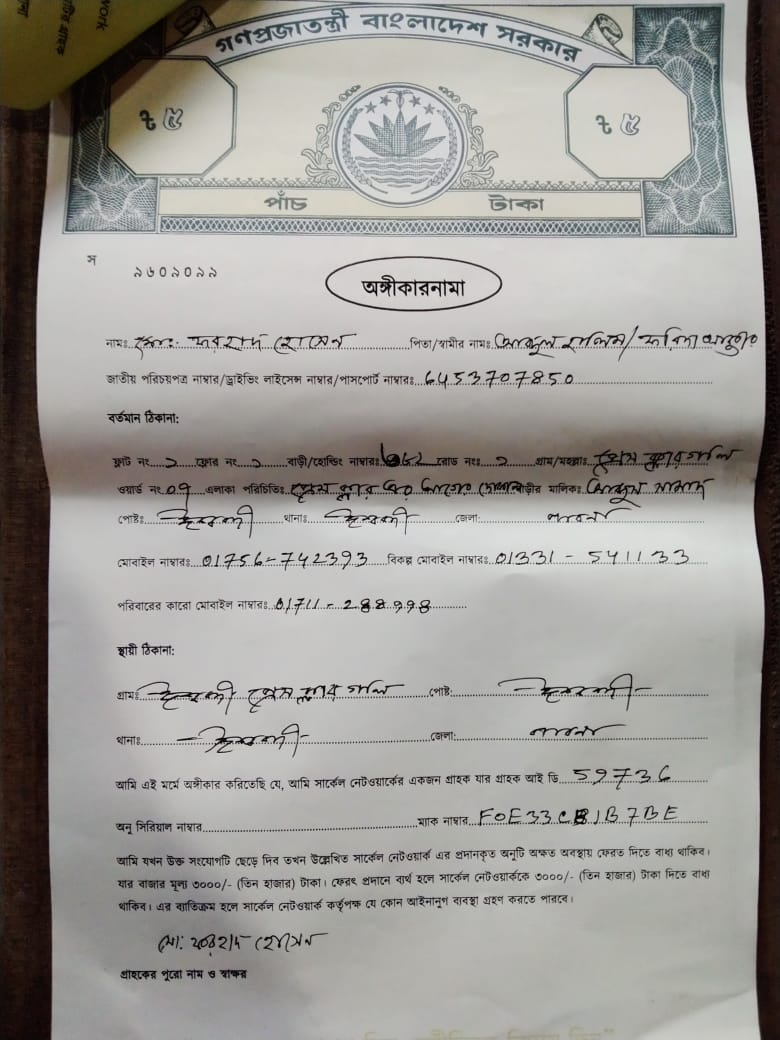 work
গণপ্রজাতন্ত্রী বাংলাদেশ সরকার
৳ ৫ ৳ ৫
পাঁচ টাকা
স
৯৬০৯০৯৯
অঙ্গীকারনামা
নামঃ মোঃ ফরহাদ হোসেন পিতা/স্বামীর নামঃ আব্দুল হালিম/ফরিদা
জাতীয় পরিচয়পত্র নাম্বার/ড্রাইভিং লাইসেন্স নাম্বার/পাসপোর্ট নাম্বারঃ 6453707850
বর্তমান ঠিকানা:
ফ্লাট নং ১ ফ্লোর নং ১ বাড়ী/হোল্ডিং নাম্বারঃ রোড নংঃ ১ গ্রাম/মহল্লাঃ প্রেস ক্লাব গলি
ওয়ার্ড নং 07 এলাকা পরিচিতিঃ প্রেস ক্লাব এর আগের বাড়ীর মালিকঃ আব্দুল সামাদ
পোষ্টঃ ঈশ্বরদী থানাঃ ঈশ্বরদী জেলা: পাবনা
মোবাইল নাম্বারঃ 01756-742393 বিকল্প মোবাইল নাম্বারঃ 01331-541133
পরিবারের কারো মোবাইল নাম্বারঃ
স্থায়ী ঠিকানা:
গ্রামঃ ঈশ্বরদী প্রেস ক্লাব গলি পোষ্ট: -ঈশ্বরদী-
থানাঃ -ঈশ্বরদী- জেলা: পাবনা
আমি এই মর্মে অঙ্গীকার করিতেছি যে, আমি সার্কেল নেটওয়ার্কের একজন গ্রাহক যার গ্রাহক আই ডি 59736
অনু সিরিয়াল নাম্বার ম্যাক নাম্বার
আমি যখন উক্ত সংযোগটি ছেড়ে দিব তখন উল্লেখিত সার্কেল নেটওয়ার্ক এর প্রদানকৃত অনুটি অক্ষত অবস্থায় ফেরত দিতে বাধ্য থাকিব।
যার বাজার মূল্য ৩০০০/- (তিন হাজার) টাকা। ফেরৎ প্রদানে ব্যর্থ হলে সার্কেল নেটওয়ার্ককে ৩০০০/- (তিন হাজার) টাকা দিতে বাধ্য
থাকিব। এর ব্যাতিক্রম হলে সার্কেল নেটওয়ার্ক কর্তৃপক্ষ যে কোন আইনানুগ ব্যবস্থা গ্রহণ করতে পারবে।
মো: ফরহাদ হোসেন
গ্রাহকের পুরো নাম ও স্বাক্ষর